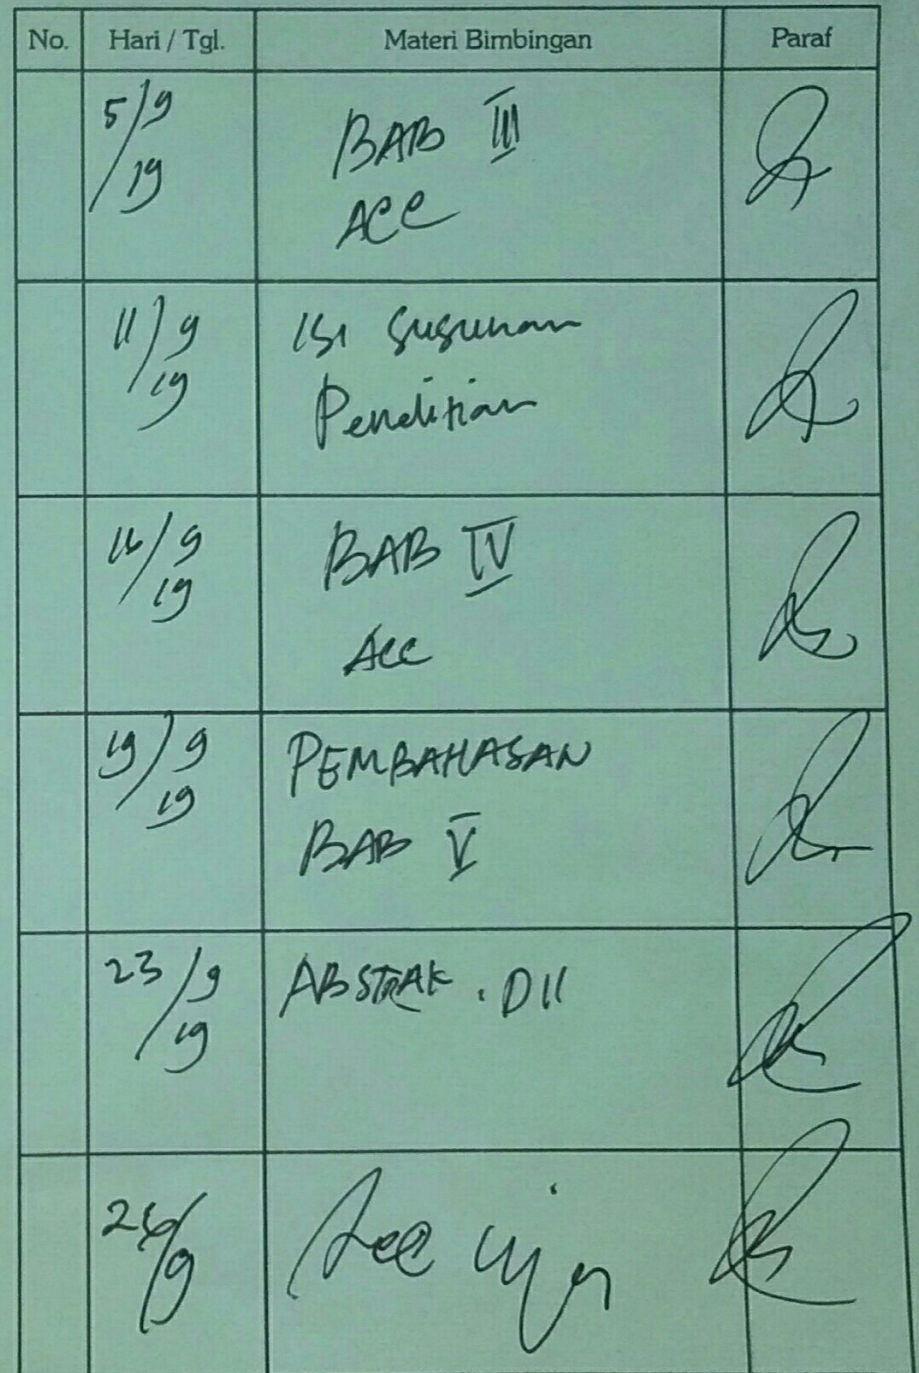 No. Hari / Tgl. Materi Bimbingan Paraf
5/9 BAB III
19 ACC
11/9 Isi Susunan
19 Penelitian
16/9 BAB IV
19 Acc
19/9 PEMBAHASAN
19 BAB V
23/9 ABSTRAK . Dll
19
Acc Ujian
9